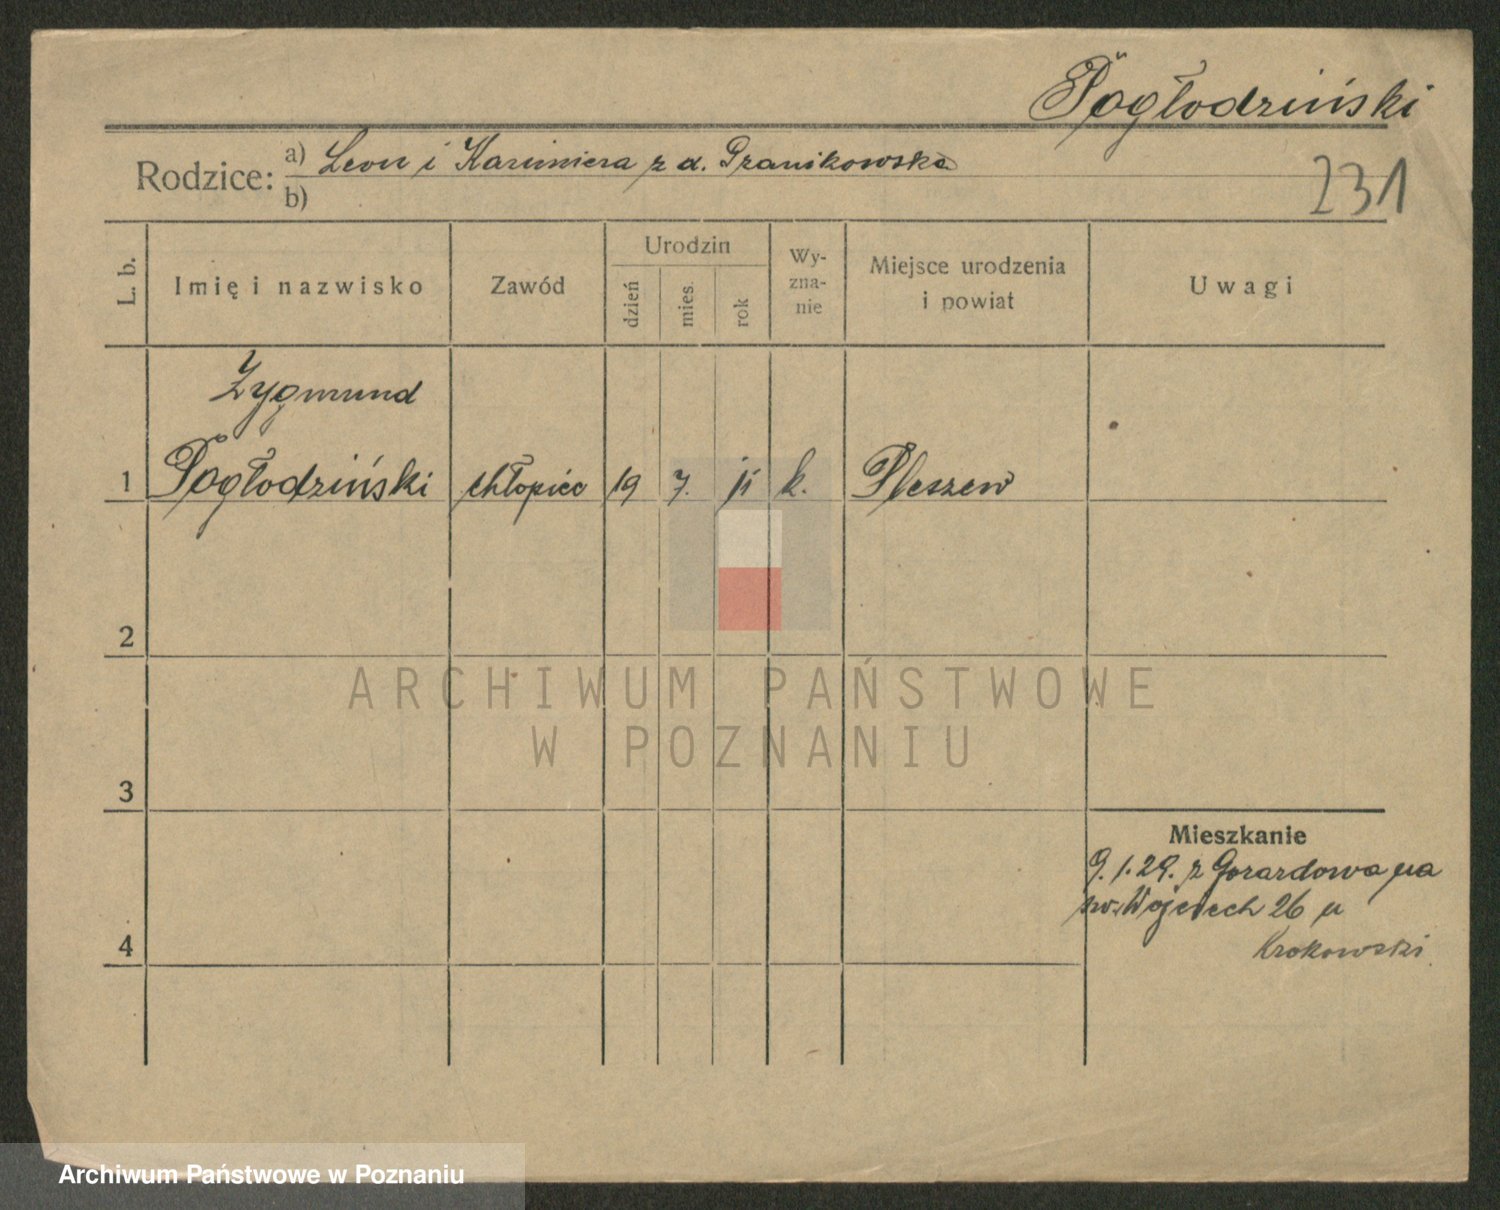 Pogłodziński
Rodzice: a) Leon i Kazimiera z d.
b)
231
L. b.
Imię i nazwisko
Zawód
Urodzin
dzień
mies.
rok
Wy-
zna-
nie
Miejsce urodzenia
i powiat
Uwagi
Zygmund
1 Pogłodziński chłopiec 19 7. k. Pleszew
2
3
4
Mieszkanie
9.1.29. z na
św. Wojciech 26 u
Krokowski
ARCHIWUM PAŃSTWOWE
W POZNANIU
Archiwum Państwowe w Poznaniu